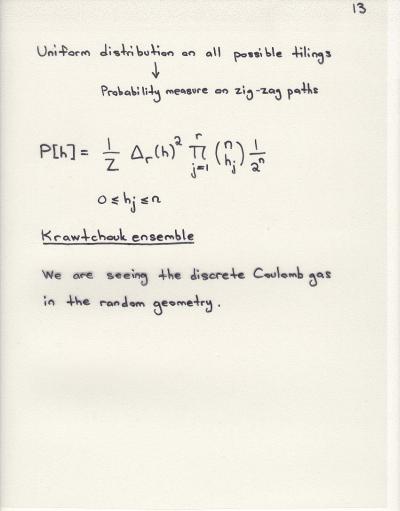 13
Uniform distribution on all possible tilings
↓
Probability measure on zig-zag paths
P[h] = 1/Z Δ_r(h)² ∏_{j=1}^{r} (n h_j) 1/2ⁿ
0 ≤ h_j ≤ n
Krawtchouk ensemble
We are seeing the discrete Coulomb gas
in the random geometry.